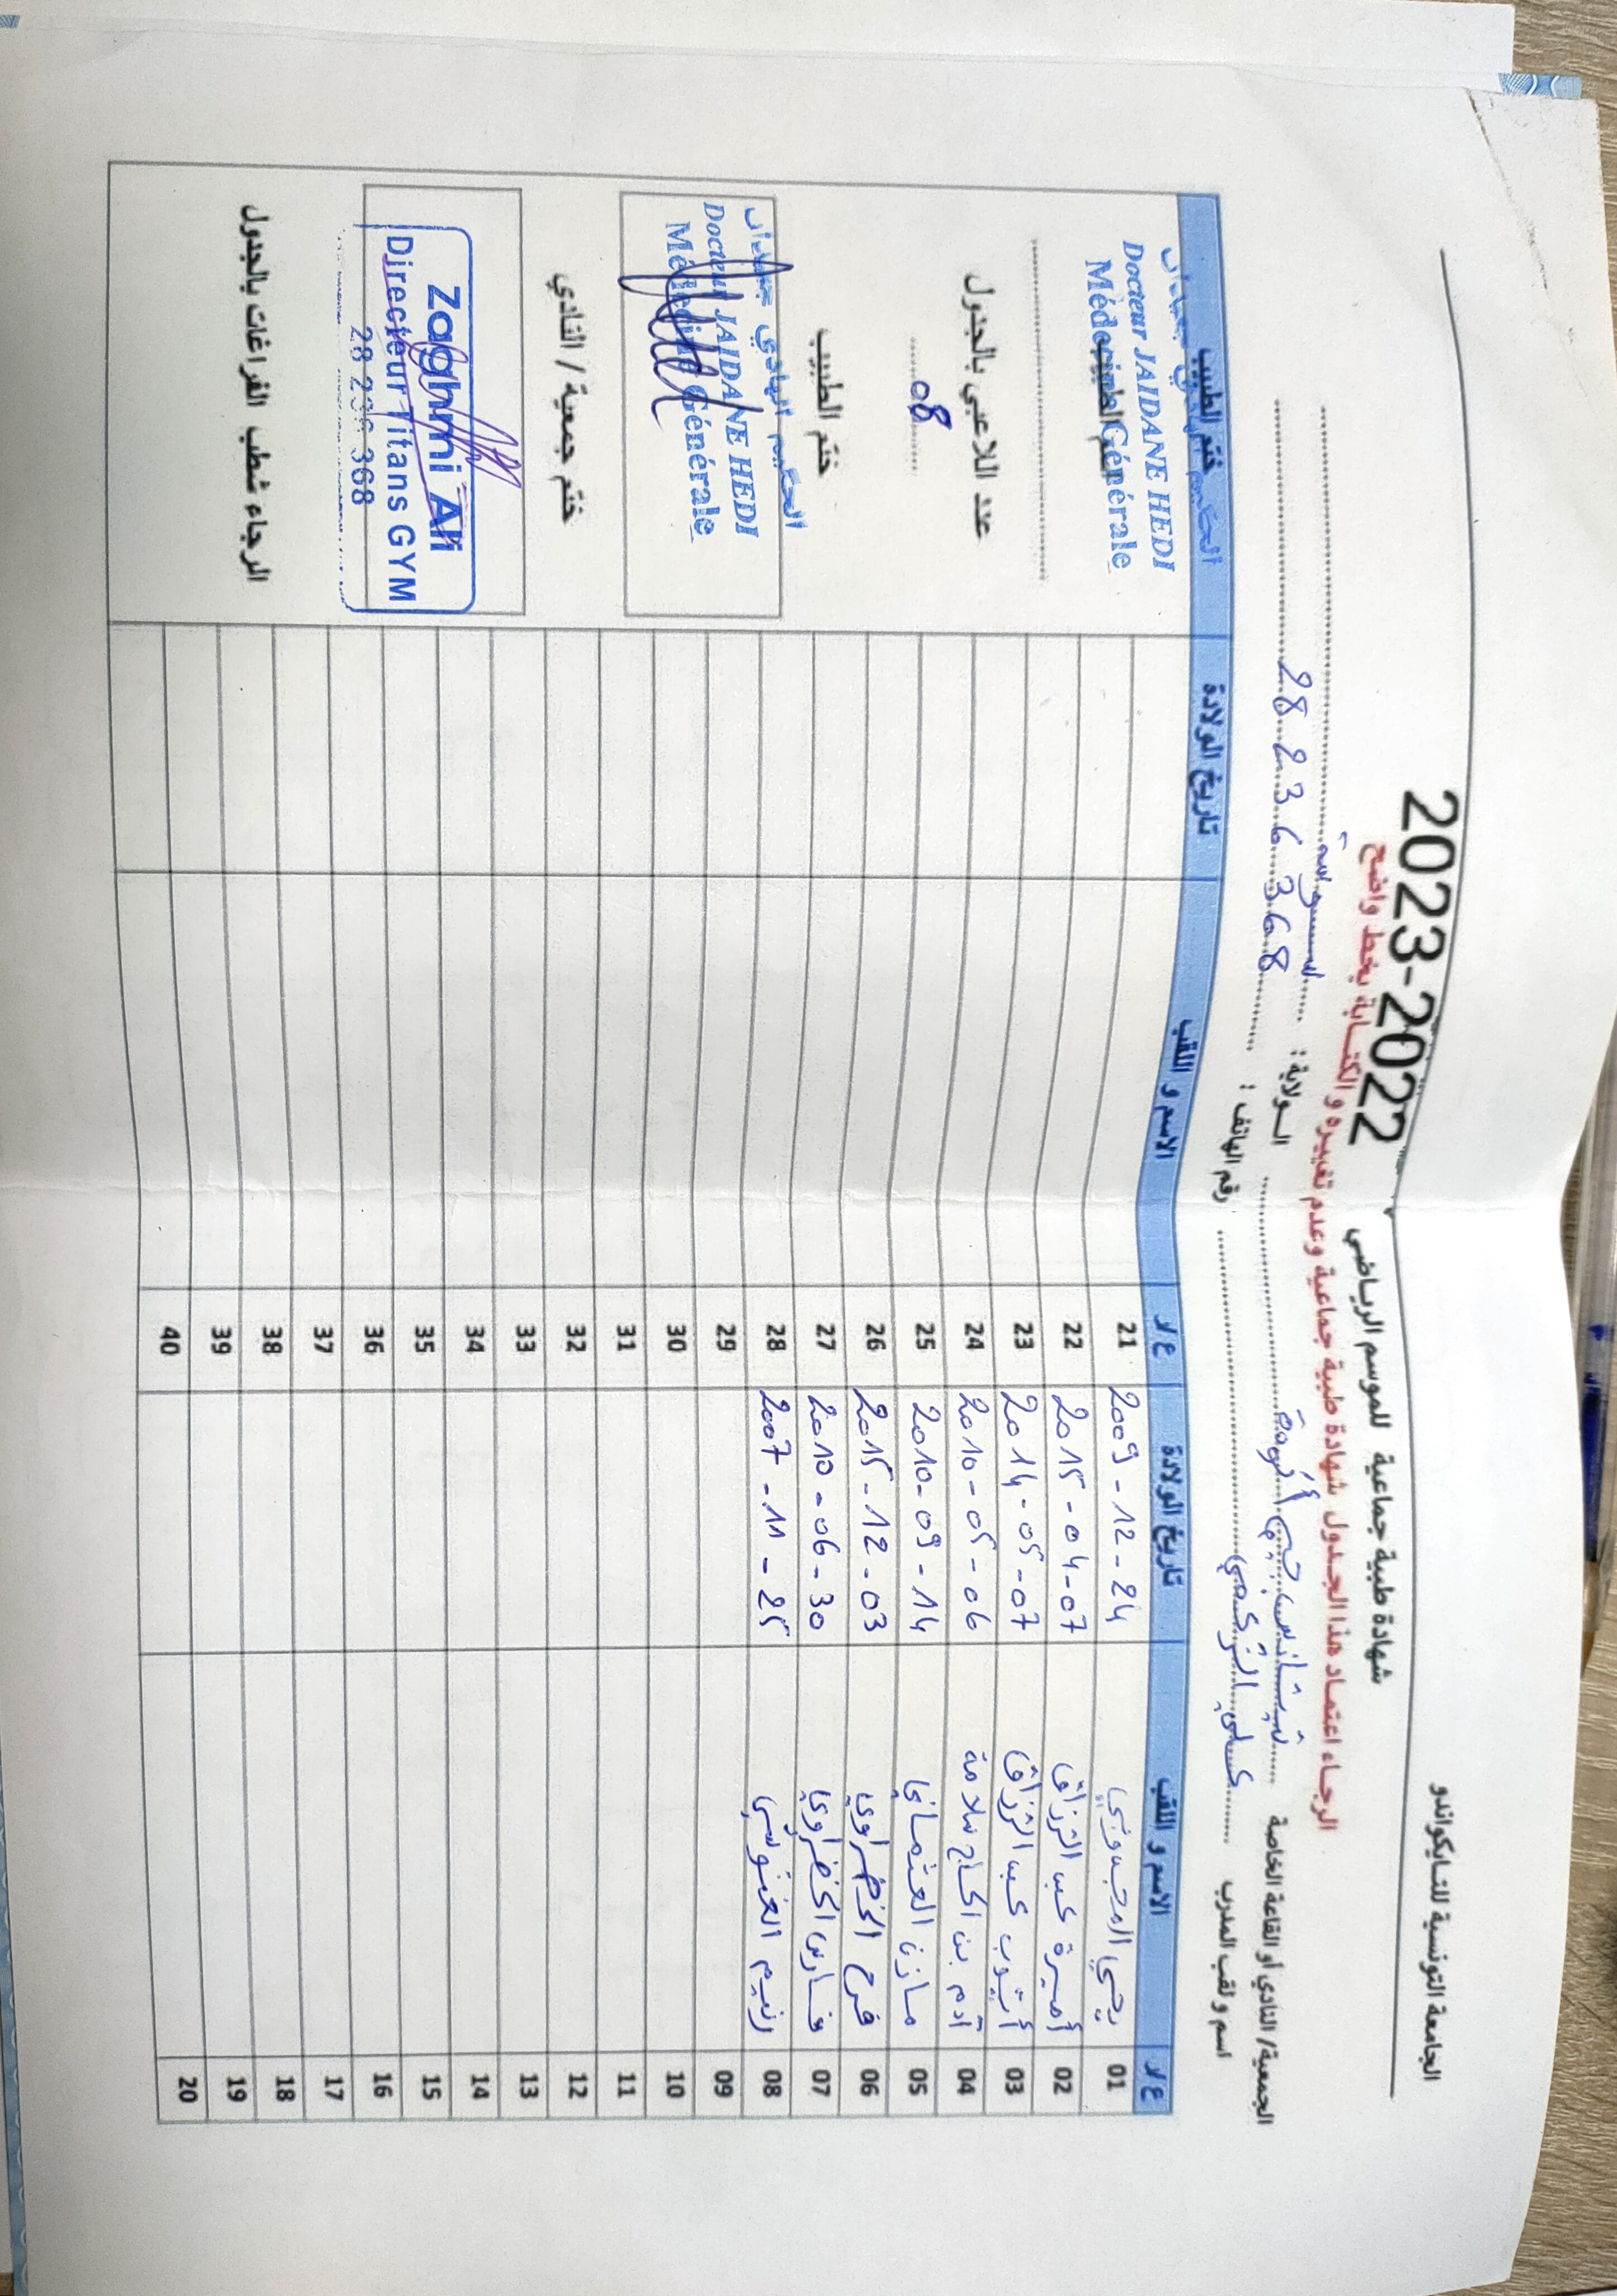 الجامعة التونسية للتايكواندو
شهادة طبية جماعية للموسم الرياضي 2023-2022
الرجاء اعتماد هذا الجدول شهادة طبية جماعية وعدم تغييره و الكتابة بخط واضح
الجمعية/ النادي أو القاعة الخاصة تيتانس جيم أكودة الولاية : سوسة
اسم و لقب المدرب علي الزغمي رقم الهاتف : 28 236 368
ع/د الاسم و اللقب تاريخ الولادة ع/د الاسم و اللقب تاريخ الولادة ختم الطبيب
01 يحيى المحجوبي 2009-12-24 21
02 أميرة عبد الرزاق 2015-04-07 22
03 أيوب عبد الرزاق 2014-05-07 23
04 آدم بن الحاج سلامة 2010-05-06 24
05 مازن العثماني 2010-09-14 25
06 فرح الخضراوي 2015-12-03 26
07 فارس الخضراوي 2010-06-30 27
08 رنيم الغنوشي 2007-11-25 28
09 29
10 30
11 31
12 32
13 33
14 34
15 35
16 36
17 37
18 38
19 39
20 40
الحكيم الهادي جعيدان
Docteur JAIDANE HEDI
Médecine Générale
عدد اللاعبي بالجدول
08
ختم الطبيب
الحكيم الهادي جعيدان
Docteur JAIDANE HEDI
Médecine Générale
ختم جمعية / النادي
Zaghmi Ali
Directeur Titans GYM
28 236 368
الرجاء شطب الفراغات بالجدول